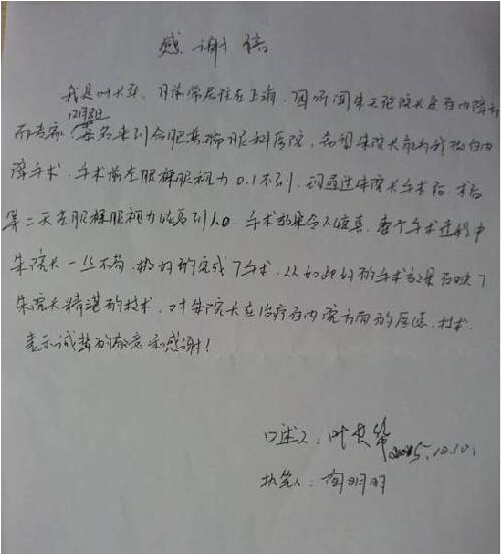 感谢信
我是叶大华，日常居住在上海，因听闻朱院长是白内障方
12月8日
面专家，慕名来到合肥普瑞眼科医院，希望朱院长能为我做白内
障手术。手术前左眼裸眼视力0.1不到，现通过朱院长手术后，术后
第二天左眼裸眼视力恢复到1.0，手术效果令人惊喜，整个手术过程中
朱院长一丝不苟，很好的完成了手术，从如此好的手术效果反映了
朱院长精湛的技术，对朱院长在治疗白内障方面的医德、技术，
表示诚挚的敬意和感谢！
口述人：叶大华
2015.10.10.
执笔人：陶明明